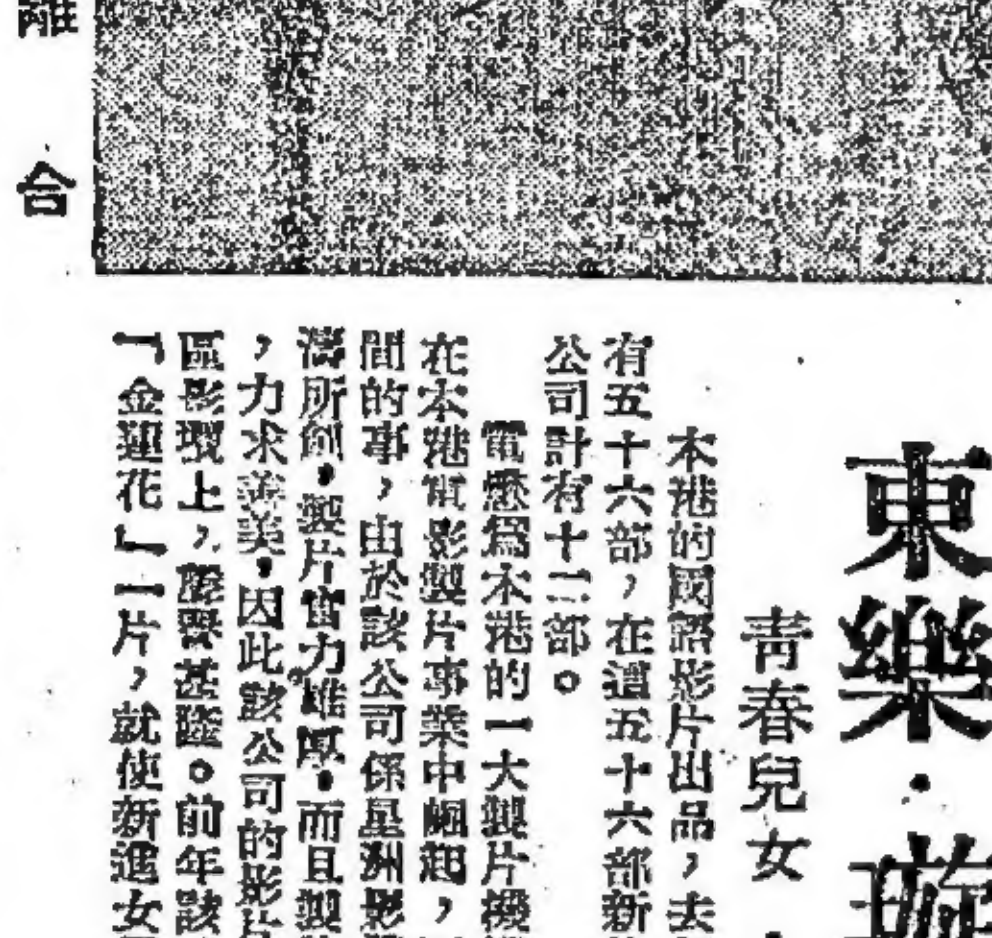 東樂·璇
青春兒女
本港的國語影片出品，去
有五十六部，在這五十六部新
公司計有十二部。
電懋爲本港的一大製片機
在本港電影製片事業中崛起，
間的事，由於該公司係星洲影
濤所創，製片富力雄厚，而且製
，力求善美，因此該公司的影片
區影壇上，聲譽甚隆。前年該
「金蓮花」一片，就使新進女
離合